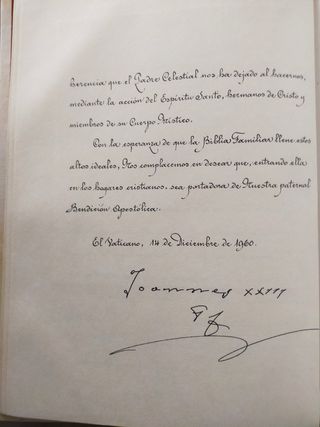 herencia que el Padre Celestial nos ha dejado al hacernos,
mediante la acción del Espíritu Santo, hermanos de Cristo y
miembros de su Cuerpo Místico.
Con la esperanza de que la Biblia Familiar llene estos
altos ideales, Nos complacemos en desear que, entrando ella
en los hogares cristianos, sea portadora de Nuestra paternal
Bendición Apostólica.
El Vaticano, 14 de Diciembre de 1960.
Ioannes XXIII